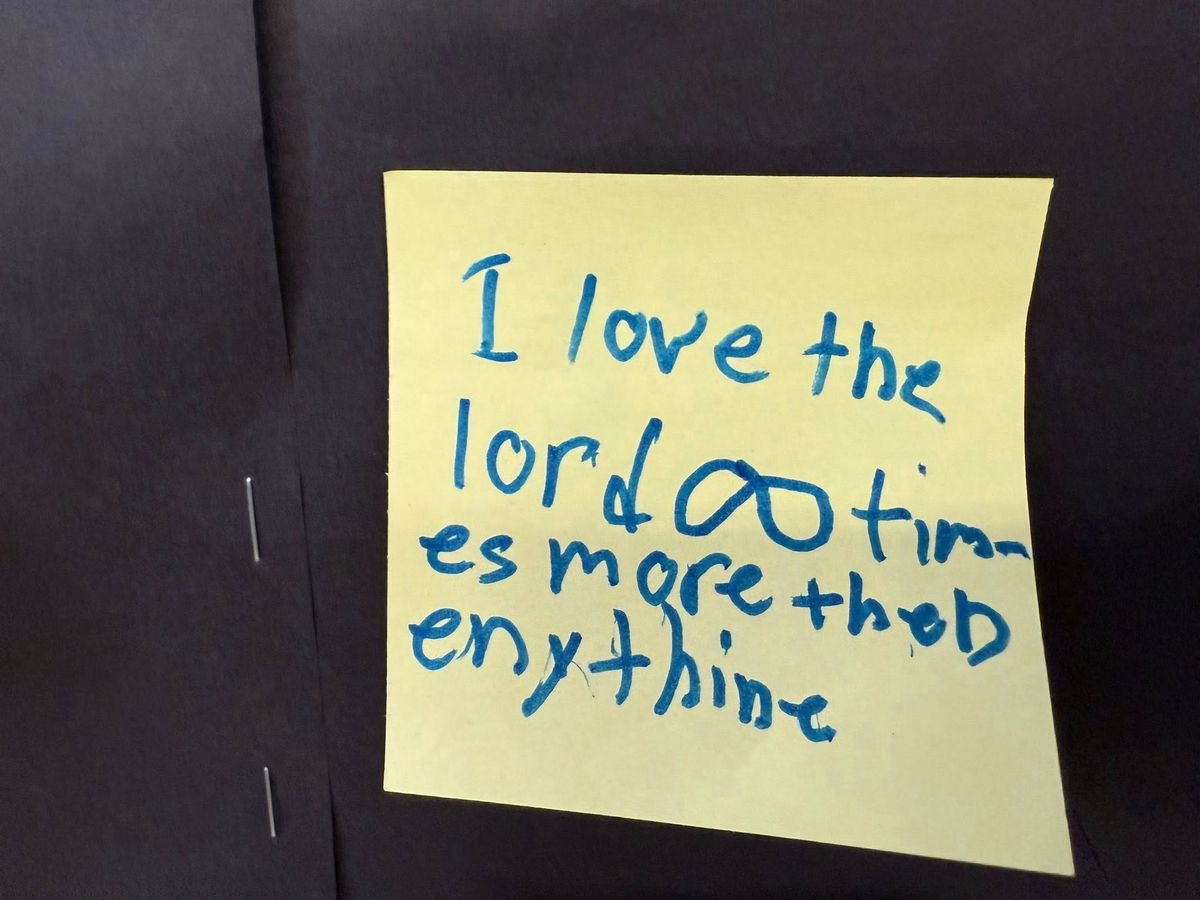 I love the
lord ∞ tim-
es more then
enythine